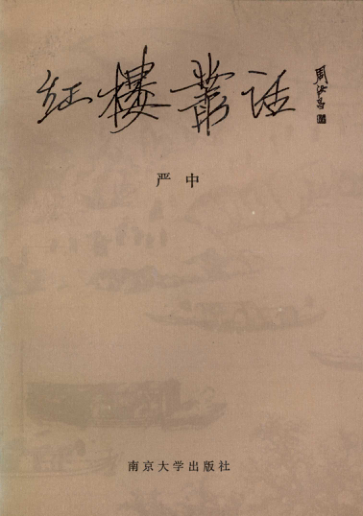 红楼丛话 周汝昌
严中
南京大学出版社